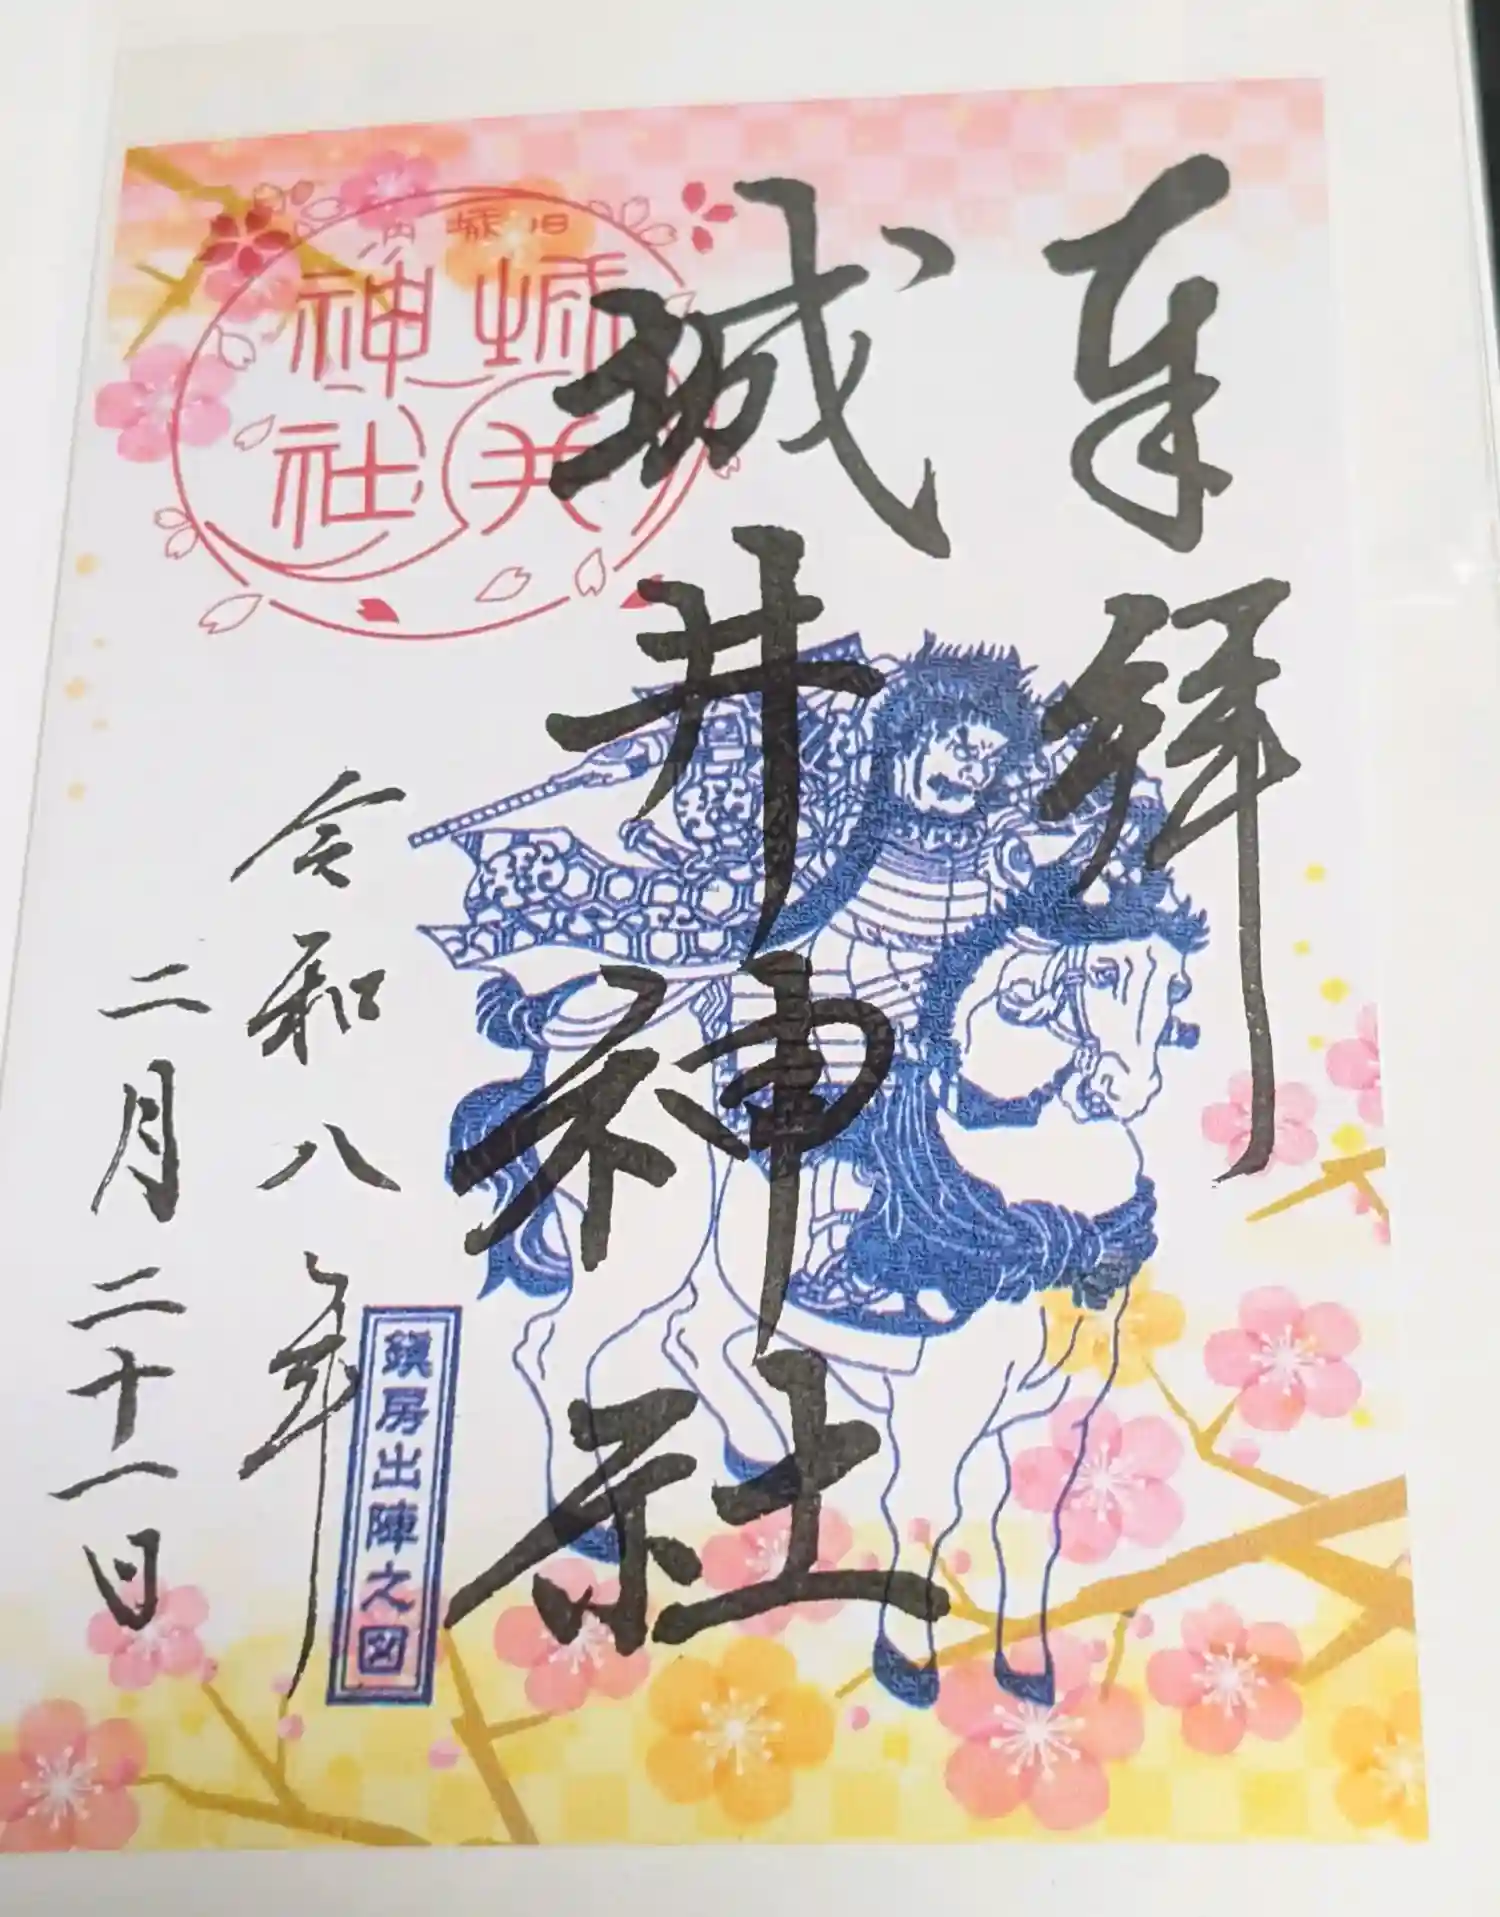 奉拝
城井神社
令和八年
二月二十一日
旧城内
城井
神社
鎮房出陣之図